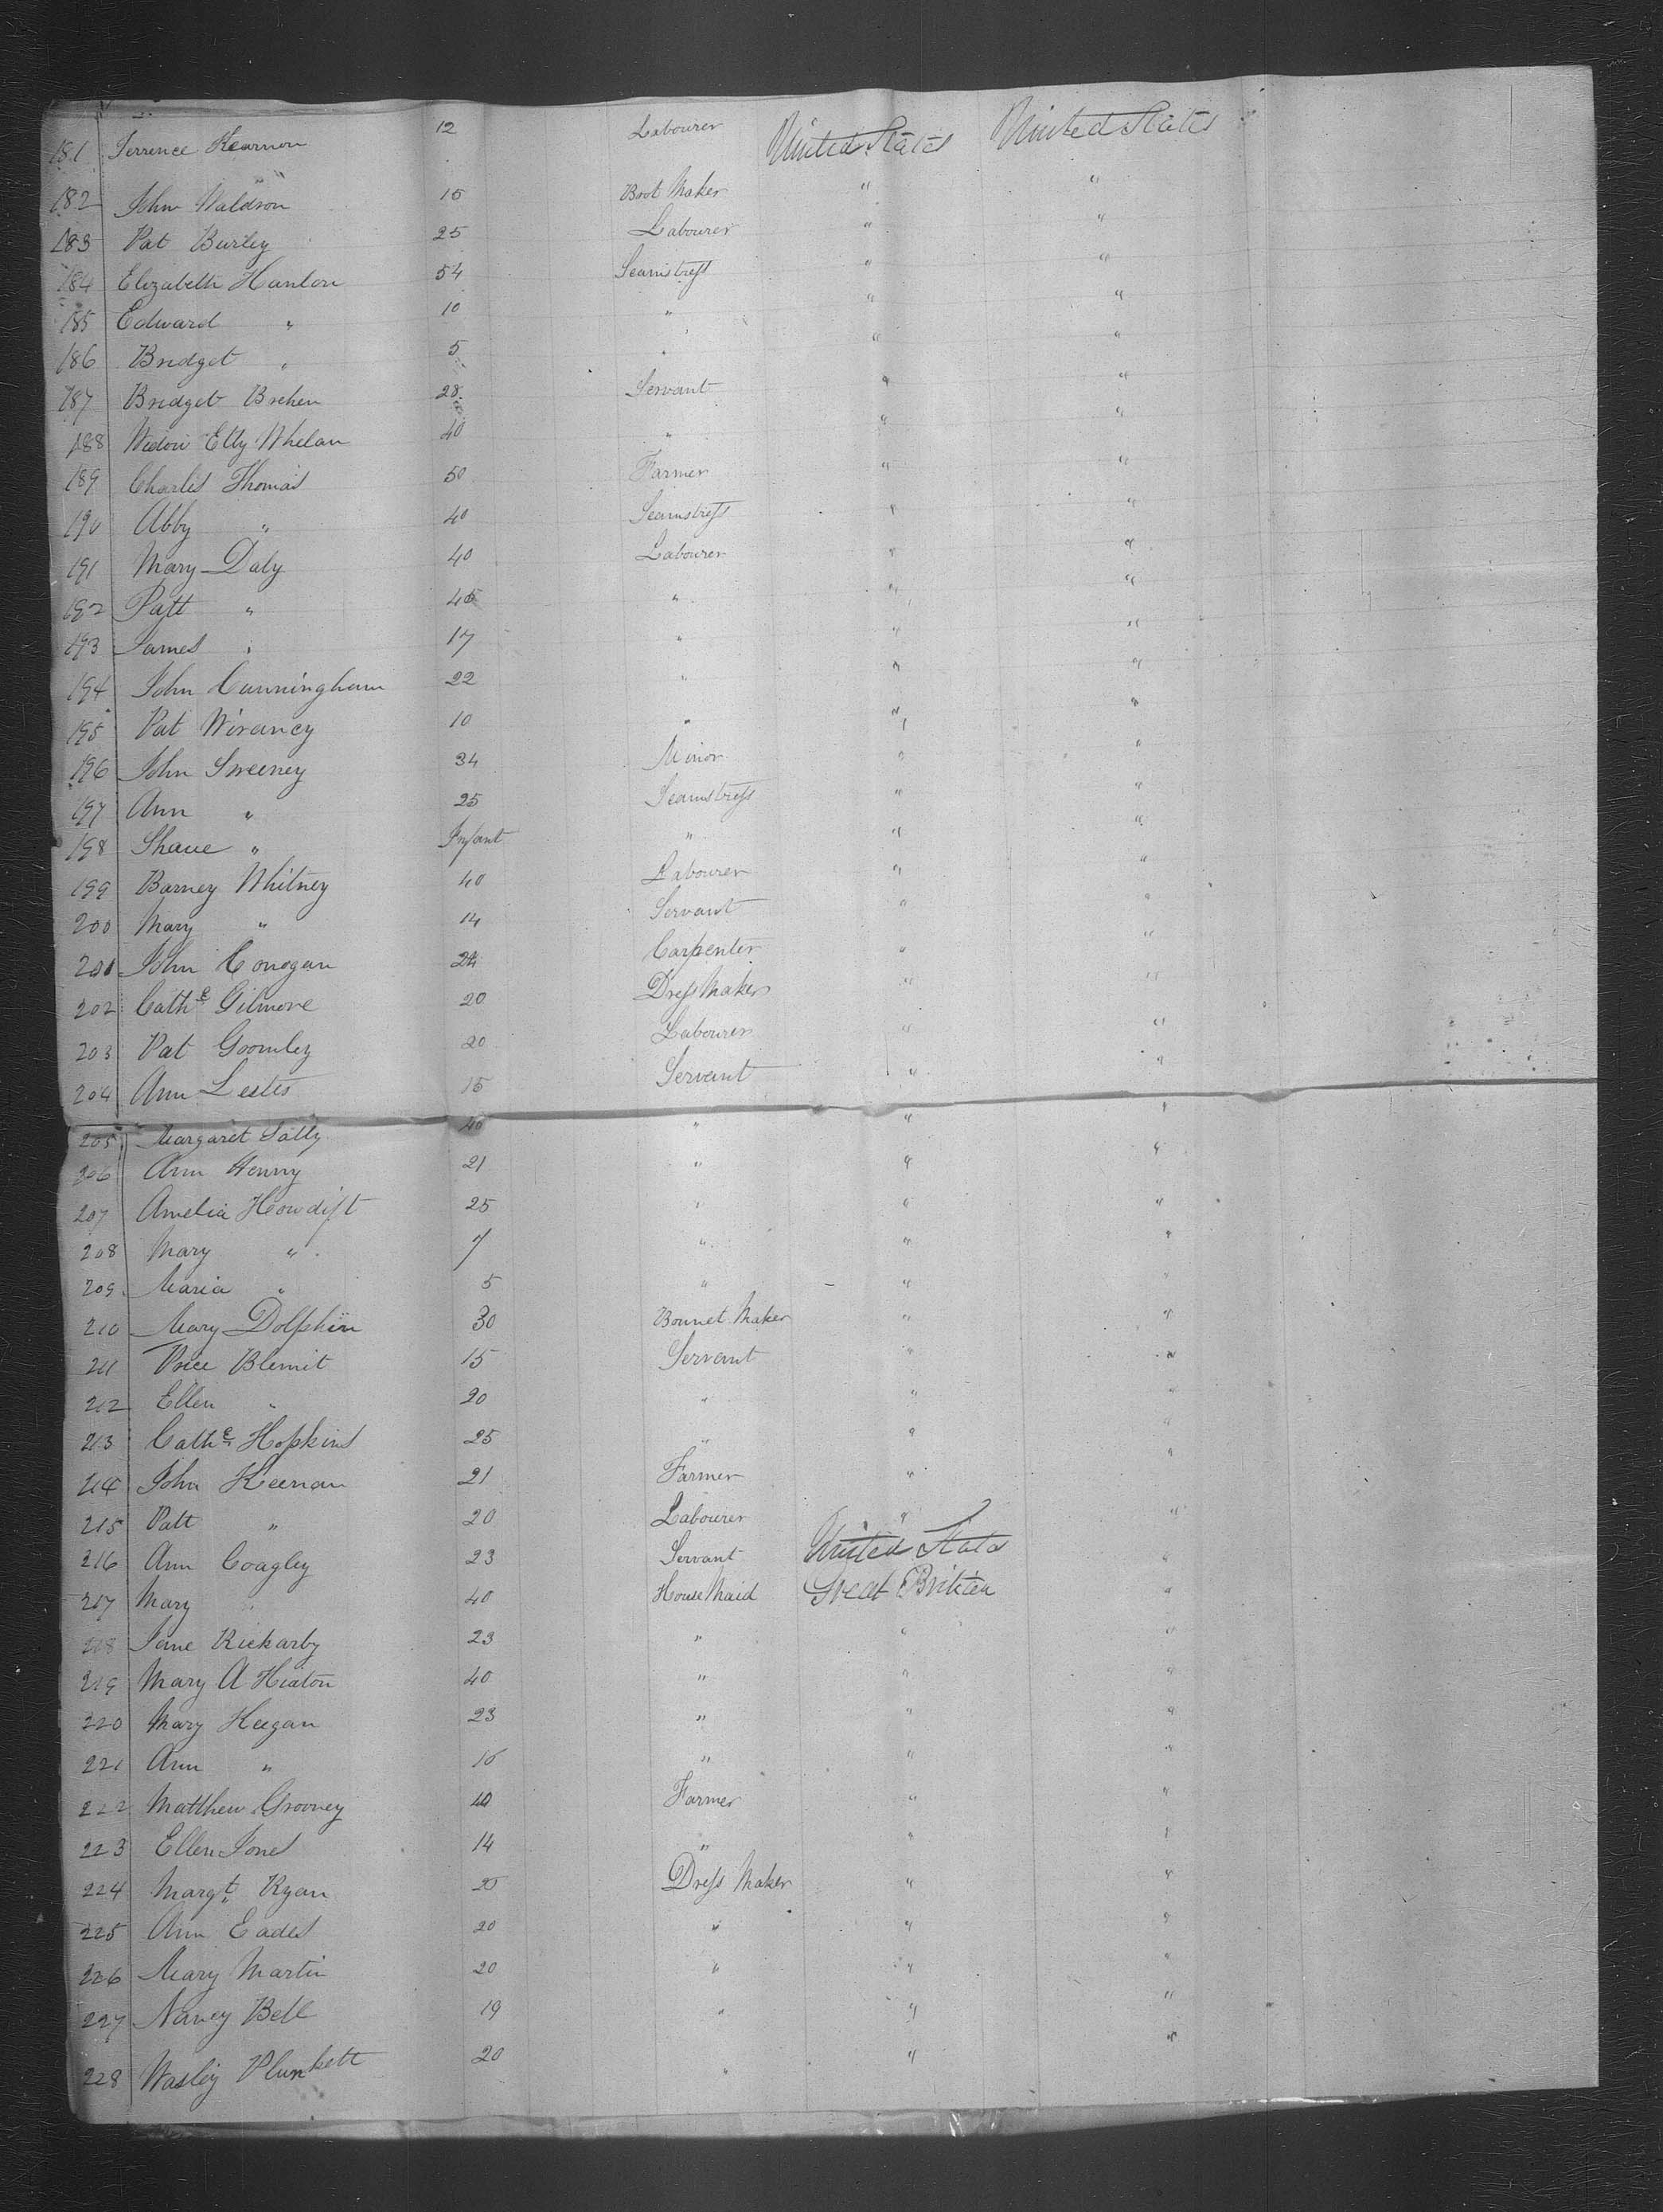 181 Terrence Kearnon 12 Labourer United States United States
182 John Waldron 15 Boot Maker " "
183 Pat Burley 25 Labourer " "
184 Elizabeth Hanlon 54 Seamstress " "
185 Edward " 10 " " "
186 Bridget " 5 " " "
187 Bridget Brehen 28 Servant " "
188 Widow Etty Whelan 40 " " "
189 Charles Thomas 50 Farmer " "
190 Abby " 40 Seamstress " "
191 Mary Daly 40 Labourer " "
192 Patt " 45 " " "
193 James " 17 " " "
194 John Cunningham 22 " " "
195 Pat 10 " " "
196 John Sweeney 34 Minor " "
197 Ann " 25 Seamstress " "
198 " Infant " " "
199 Barney Whitney 40 Labourer " "
200 Mary " 14 Servant " "
201 John Conogan 24 Carpenter " "
202 Cathe Gilmore 20 Dress Maker " "
203 Pat Goomley 20 Labourer " "
204 Ann 15 Servant " "
205 Margaret 40 " " "
206 Ann Henry 21 " " "
207 Amelia Howdift 25 " " "
208 Mary " 7 " " "
209 Maria " 5 " " "
210 Mary Dolphin 30 Bonnet Maker " "
211 Price Blemit 15 Servant " "
212 Ellen " 20 " " "
213 Cathe Hopkins 25 " " "
214 John Keenan 21 Farmer " "
215 Patt " 20 Labourer " "
216 Ann Coagley 23 Servant United States "
217 Mary " 40 House Maid Great Britian "
218 Jane Rickarby 23 " " "
219 Mary A Heaton 40 " " "
220 Mary Keegan 23 " " "
221 Ann " 16 " " "
222 Matthew Grooney 40 Farmer " "
223 Ellen Jones 14 " " "
224 Margt Ryan 25 Dress Maker " "
225 Ann Eades 20 " " "
226 Mary Martin 20 " " "
227 Nancy Bell 19 " " "
228 Wasley Plunkett 20 " " "